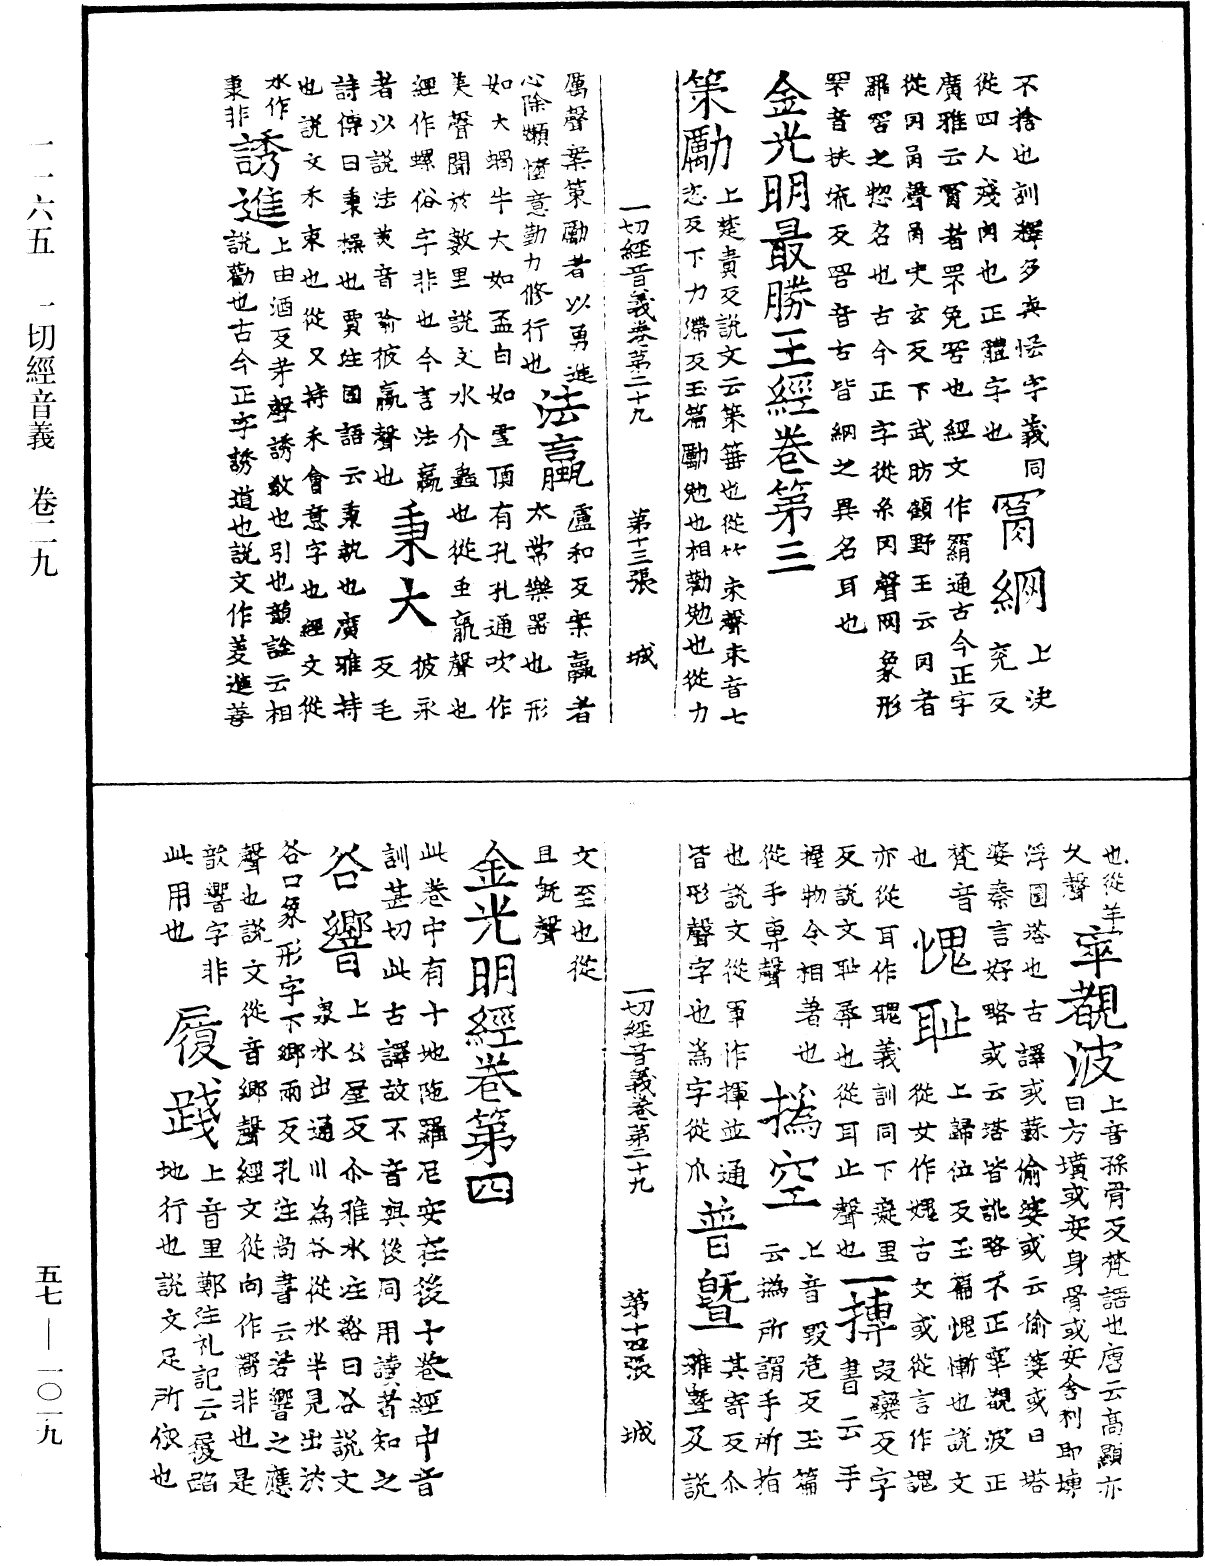 不捨也訓釋多與恡字義同罥網上決
從四人殘肉也正體字也兖反
廣雅云罥者罘免罟也經文作羂通古今正字
從冈肙聲肙史玄反下武昉顧野王云冈者
羅罟之惣名也古今正字從糸冈聲网象形
罘音扶流反罟音古皆網之異名耳也
金光明最勝王經卷第三
策勵上楚責反說文云策箠也從竹朿聲朿音七
恣反下力滯反玉篇勵勉也相勸勉也從力
一切經音義卷第二十九 第十三張 城
厲聲案策勵者以勇進
心除嬾惰意勤力修行也法蠃盧和反案蠃者
太常樂器也形
如大蝸牛大如盂白如雪頂有孔孔通吹作
美聲聞於數里說文水介蟲也從虫𣎆聲也
經作螺俗字非也今言法蠃
者以說法美音喻彼蠃聲也秉大彼永
反毛
詩傳曰秉操也賈注國語云秉執也廣雅持
也說文禾束也從又持禾會意字也經文從
水作
秉非誘進上由酒反茅聲誘教也引也韻詮云相
說勸也古今正字誘道也說文作羑進善
也從羊
久聲窣覩波上音孫骨反梵語也唐云高顯亦
曰方墳或安身骨或安舍利即塼
浮圖塔也古譯或蘇偷婆或云偷婆或曰塔
婆秦言好略或云塔皆訛略不正窣覩波正
梵音
也愧耻上歸位反玉篇愧慚也說文
從女作媿古文或從言作謉
亦從耳作聭義訓同下癡里
反說文耻辱也從耳止聲也一摶段欒反字
書云手
握物令相著也
從手專聲撝空上音毀危反玉篇
云撝所謂手所指
也說文從軍作揮並通
皆形聲字也爲字從爪普曁其寄反尒
雅曁及說
一切經音義卷第二十九 第十四張 城
文至也從
且旣聲
金光明經卷第四
此卷中有十地陁羅尼安在後十卷經中音
訓甚切此古譯故不音與後同用讀者知之
谷響上公屋反尒雅水注谿曰谷說文
泉水出通川為谷從水半見出於
谷口象形字下鄉兩反孔注尚書云若響之應
聲也說文從音鄉聲經文從向作嚮非也是
歆響字非
此用也履踐上音里鄭注礼記云履蹈
地行也說文足所依也
一一六五 一切經音義 卷二九
五七 — 一〇一九